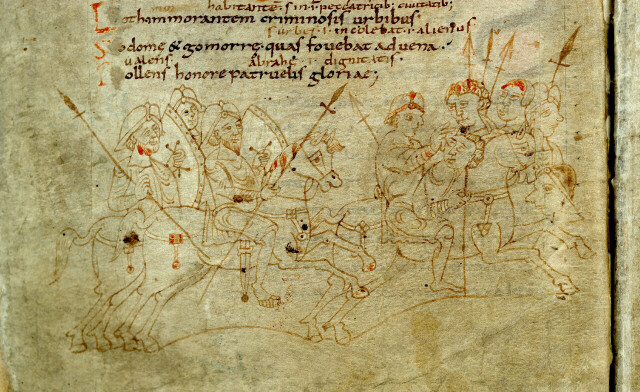 habitante; s in i peccatricib; civitatib;
Loth immorantem criminosis urbibus
i incolebat i alienus
Sodome & gomorre quas fovebat advena.
valens Abrahę i dignitatis.
Pollens honore patruelis gloriae;